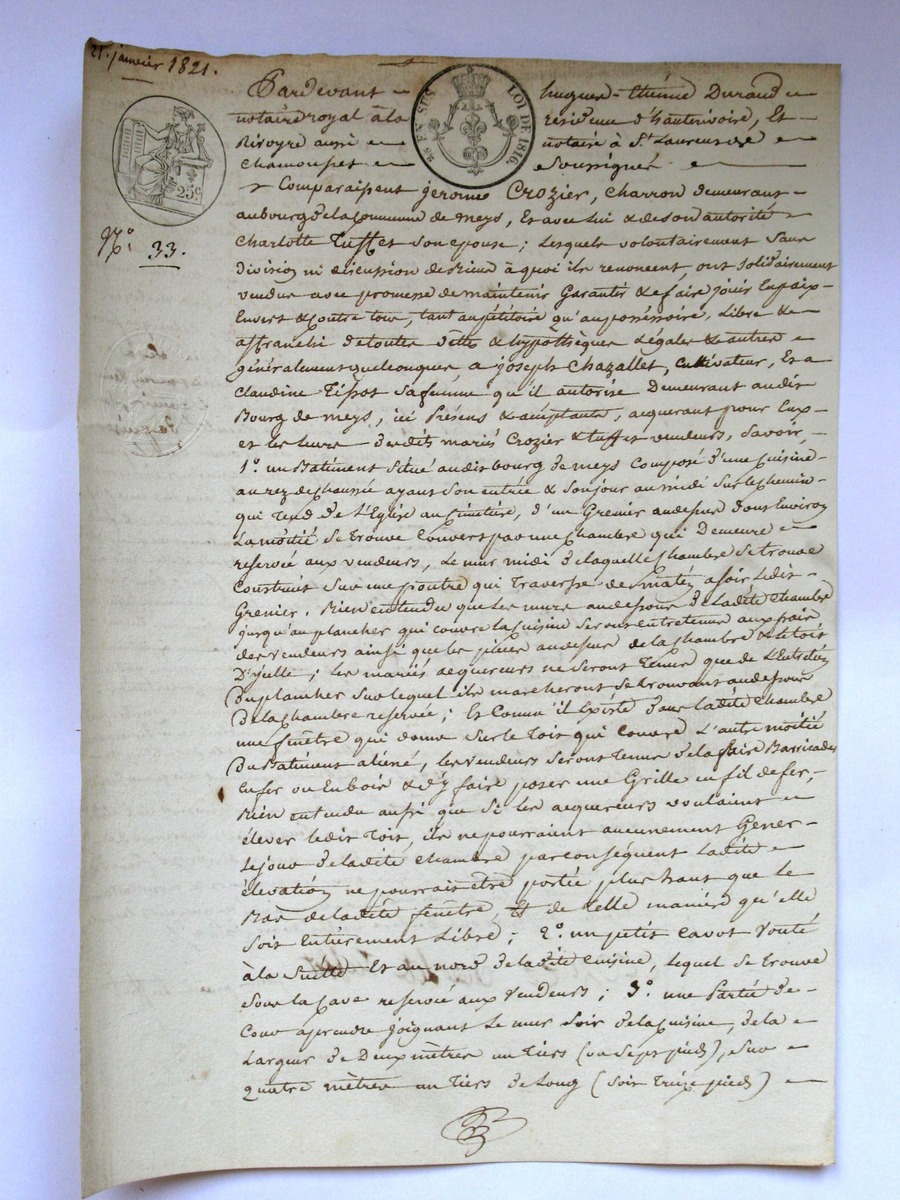 21. janvier 1821.
Pardevant hugues-étienne Durand
notaire royal à la résidence d'hauterivoire, Et
Rivoyre aussi notaire à St Laurent de
Chamousset Soussignés
EN SUS LOI DE 1816
25 c.
N.° 33.
Comparaissent jerome Crozier, charron demeurant
au bourg de la Commune de meys, Et avec lui & de son autorité
Charlotte Tuffet son epouse; lesquels volontairement Sans
division ni discussion de Biens à quoi ils renoncent, ont solidairement
vendu avec promesse de maintenir Garantir & faire jouir En paix
Envers & Contre tous, tant au pétitoire qu'au possessoire, Libre &
affranchi de toutes dettes & hypothèques Légales & autres
généralement quelconques, a joseph Chazallet, Cultivateur, Et a
Claudine Tissot Sa femme qu'il autorise Demeurant audit
Bourg de meys, ici Présens & acceptants, acquerant pour Eux
et les leurs desdits mariés Crozier & tuffet vendeurs, Savoir,
1.° un Batiment Situé audit bourg de meys Composé d'une Cuisine
au rez de Chaussée ayant Son entrée & Son jour au midi Sur le chemin
qui Tend de l'Eglise au Cimetière, d'un Grenier au dessus dont Environ
La moitié Se trouve Couvert par une Chambre qui Demeure
reservée aux vendeurs, Le mur midi de laquelle Chambre Se trouve
Construit Sur une poutre qui Traverse de matin a soir Ledit
Grenier. Bien entendu que les murs au dessous de Ladite Chambre
jusqu'au plancher qui couvre la Cuisine Seront entretenus aux frais
des vendeurs ainsi que les au dessus de la Chambre & le toit
D'ycelle; les mariés acquereurs ne Seront Tenus que de L'Entretien
Du plancher Sur lequel ils marcheront Se trouvant au dessous
De la Chambre reservée; Et Comme il Existe dans Ladite Chambre
une fenêtre qui donne Sur le Toit qui Couvre L'autre moitié
Du Batiment aliéné, les vendeurs Seront Tenus de la faire Barricader
En fer ou En bois & d'y faire poser une Grille en fil de fer,
Bien entendu aussi que Si les acquereurs voulaient
élever ledit Toit, ils ne pourraient aucunement Gener
Le jour de ladite Chambre par conséquent Ladite
élevation ne pourrait être portée plus haut que le
Bas de ladite fenêtre, & de telle manière qu'elle
Soit Entièrement Libre; 2.° un petit Cavot Vouté
à la Suitte Et au nord de ladite Cuisine, lequel Se trouve
Sous la Cave reservée aux Vendeurs; 3.° une Partie de
Cour aprendre joignant Le mur Soir de la Cuisine, de la
Largeur de Deux mètres un Tiers (ou Sept pieds), Sur
quatre mètres un Tiers de Long (Soit Treize pieds)